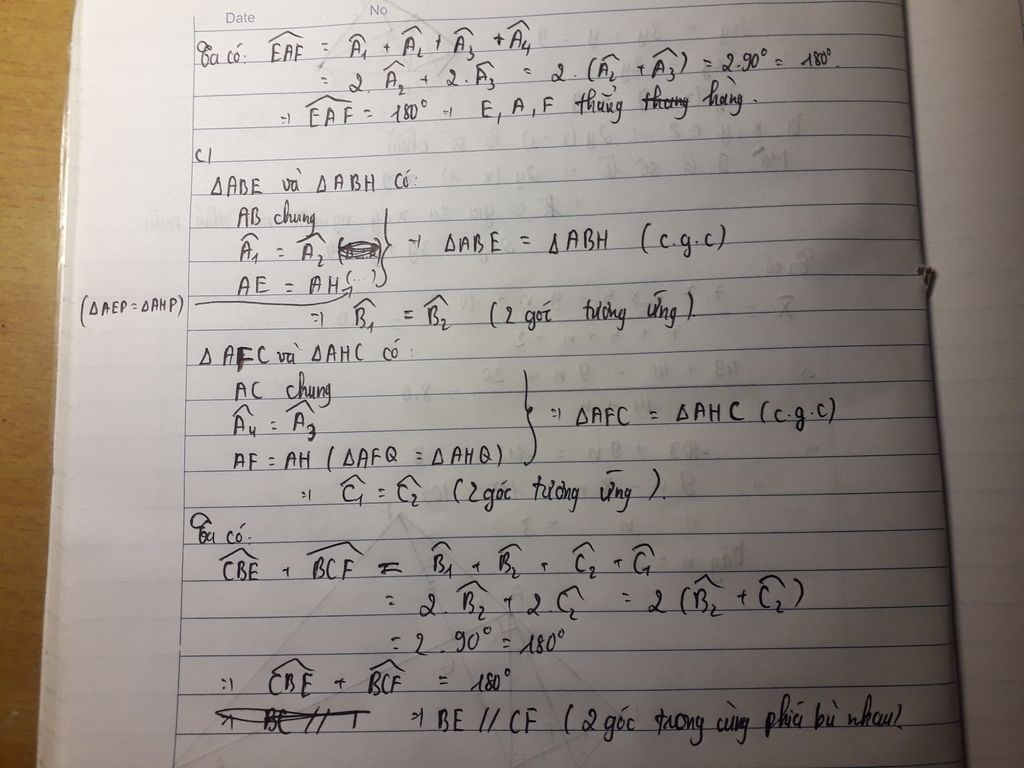 Date No
Ta có: \widehat{EAF} = \widehat{A}₁ + \widehat{A}₂ + \widehat{A}₃ + \widehat{A}₄
= 2.\widehat{A}₂ + 2.\widehat{A}₃ = 2.(\widehat{A}₂ + \widehat{A}₃) = 2.90° = 180°.
⇒ \widehat{EAF} = 180° ⇒ E, A, F thẳng hàng.
c)
ΔABE và ΔABH có:
AB chung
\widehat{A}₁ = \widehat{A}₂ ⇒ ΔABE = ΔABH (c.g.c)
AE = AH (...)
(ΔAEP = ΔAHP)
⇒ \widehat{B}₁ = \widehat{B}₂ (2 góc tương ứng)
ΔAFC và ΔAHC có:
AC chung
\widehat{A}₄ = \widehat{A}₃ ⇒ ΔAFC = ΔAHC (c.g.c)
AF = AH (ΔAFQ = ΔAHQ)
⇒ \widehat{C}₁ = \widehat{C}₂ (2 góc tương ứng).
Ta có:
\widehat{CBE} + \widehat{BCF} = \widehat{B}₁ + \widehat{B}₂ + \widehat{C}₂ + \widehat{C}₁
= 2.\widehat{B}₂ + 2.\widehat{C}₂ = 2(\widehat{B}₂ + \widehat{C}₂)
= 2.90° = 180°
⇒ \widehat{CBE} + \widehat{BCF} = 180°
⇒ BE // CF (2 góc trong cùng phía bù nhau)